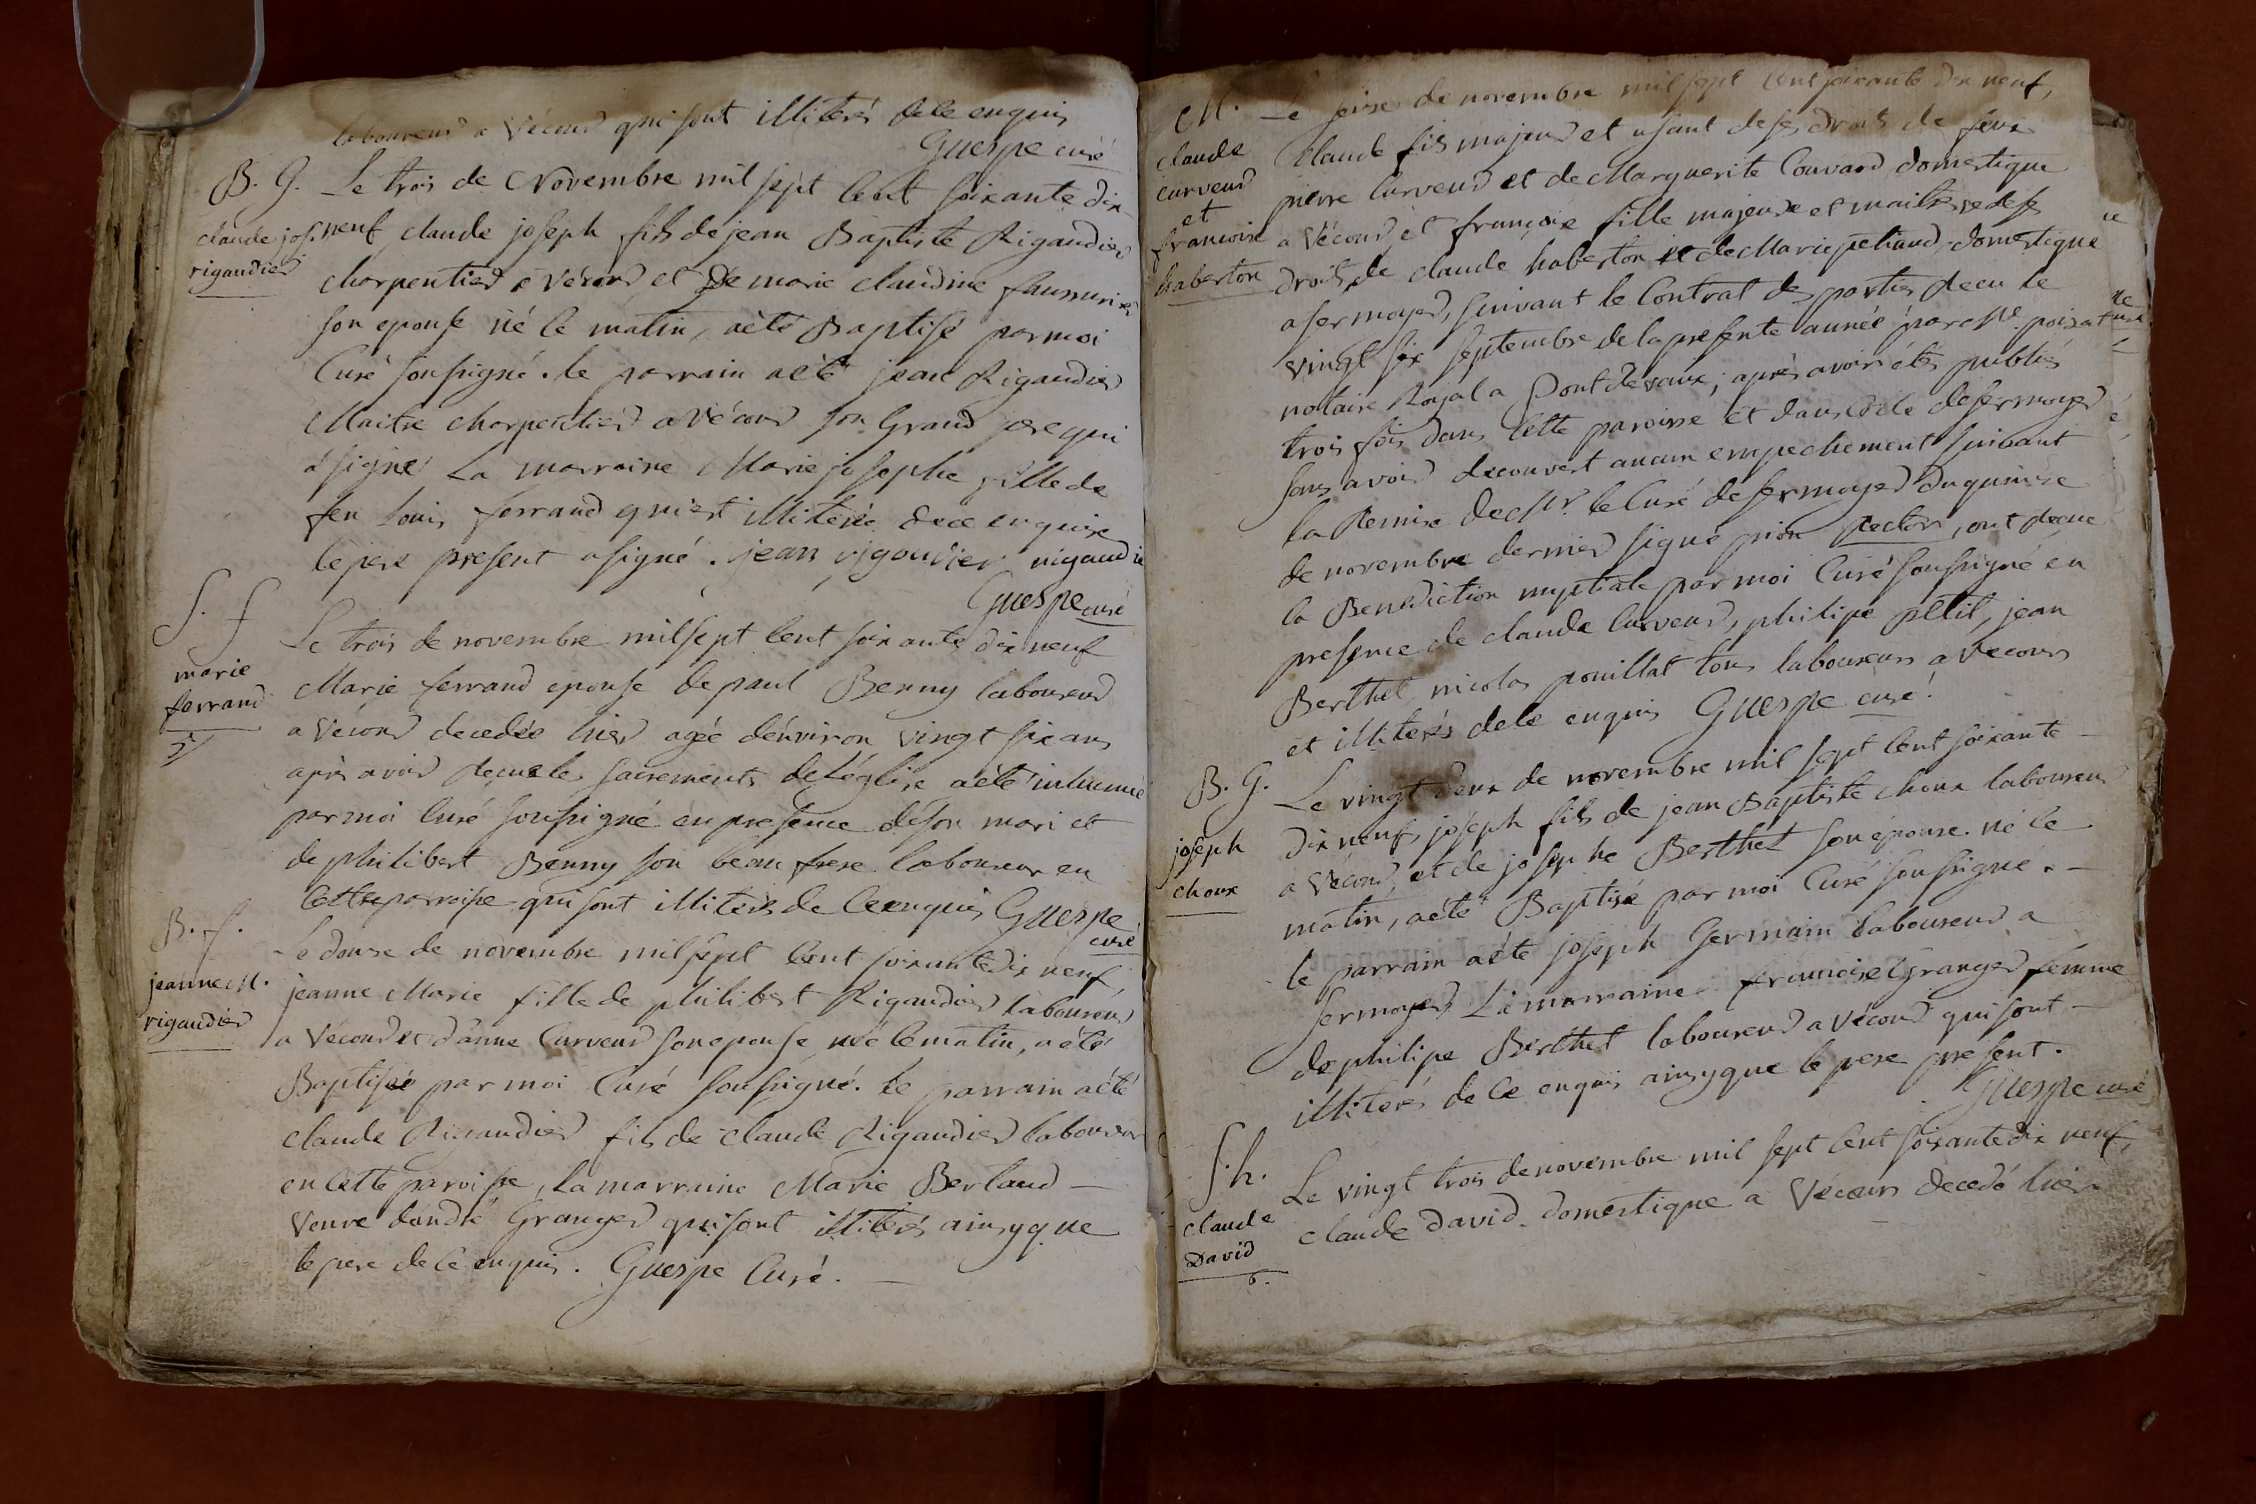 laboureur a Vécour qui sont illiterés de ce enquis
Guespe curé
B. G.
claude jos.
rigaudier
Le trois de Novembre mil sept cent soixante dix
neuf claude joseph fils de jean Baptiste Rigaudier
charpentier a Vécour et de marie claudine
son epouse né le matin, a été Baptisé par moi
Curé soussigné. le parrain a été jean Rigaudier
Maitre charpentier a Vécour son Grand pere qui
a signé La marraine Marie josephe fille de
feu Louis ferrand qui est illiterée de ce enquise
le pere present a signé. jean rigaudier rigaudie
Guespe curé
S. f
marie
ferrand
Le trois de novembre mil sept cent soixante dix neuf
Marie ferrand epouse de paul Benny laboureur
a Vécour decedée hier agée d'environ vingt six ans
après avoir recue les sacrements de l'église a été inhumée
par moi Curé soussigné en presence de son mari et
de philibert Benny son beau frere laboureur en
cette parroisse qui sont illiterés de ce enquis Guespe
curé
B. f.
jeanne M.
rigaudier
Le douse de novembre mil sept cent soixante dix neuf
jeanne Marie fille de philibert Rigaudier laboureur
a Vécour et d'anne Curveur son epouse née le matin, a été
Baptisée par moi Curé soussigné. le parrain a été
claude Rigaudier fils de claude Rigaudier laboureur
en cette paroisse, La marraine Marie Berland
Veuve d'andré Granger qui sont illiterés ainsy que
le pere de ce enquis. Guespe Curé.
M.
claude
curveur
et
francoise
haberton
Le seise de novembre mil sept cent soixante dix neuf,
Claude fils majeur et usant de ses droits de feux
pierre Curveur et de Marguerite Couvard domestique
a Vécour et françoise fille majeure et maitresse de ses
droits, de claude haberton et de Marie petiaud, domestique
a sermoyer, suivant le Contrat des parties recu le
vingt six septembre de la presente année par Me poizat
notaire Royal a Pontdevaux; après avoir étés publiés
trois fois dans cette paroisse et dans celle de sermoyer
sans avoir decouvert aucun empechement suivant
la Remise de Mr. le Curé de sermoyer du quinse
de novembre dernier signé prion rector, ont recue
la Benediction nuptiale par moi Curé soussigné en
presence de claude Curveur, philipe petit, jean
Berthet nicolas pouillat tous laboureurs a Vecours
et illiterés de ce enquis Guespe curé.
B. G.
joseph
choux
Le vingt deux de novembre mil sept cent soixante
dix neuf, joseph fils de jean Baptiste choux laboureur
a Vécour, et de josephe Berthet son épouse né le
matin, a été Baptisé par moi Curé soussigné.
le parrain a été joseph Germain laboureur a
sermoyer La marraine francoise Granger femme
de philipe Berthet laboureur a Vécour qui sont
illiterés de ce enquis ainsy que le pere present.
Guespe curé
S. h.
claude
David
6.
Le vingt trois de novembre mil sept cent soixante dix neuf,
claude david domestique a Vécours decedé hier